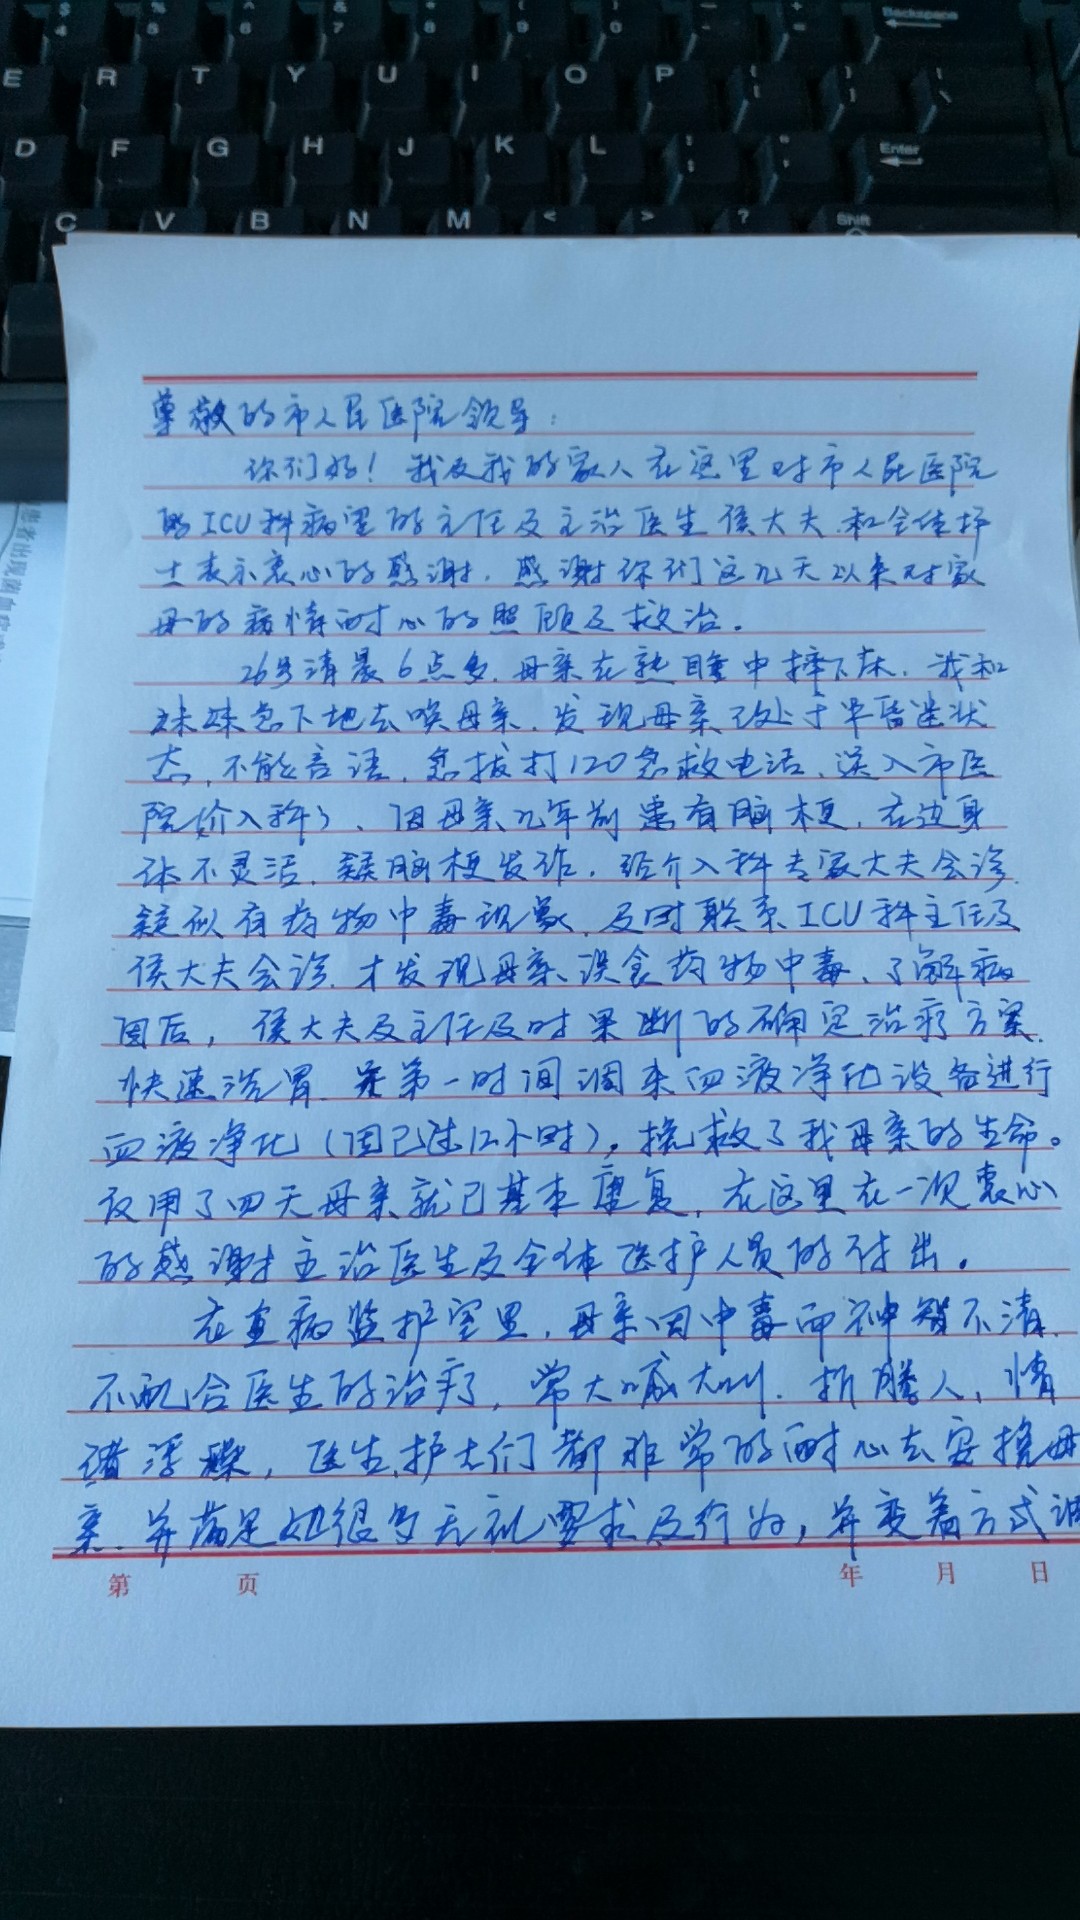 $ % ^ & * ( ) Backspace
4 5 6 7 8 9 0
E R T Y U I O P { } |
[ ] \
D F G H J K L : " Enter
; '
C V B N M < > ? Shift
尊敬的市人民医院领导：
你们好！我及我的家人在这里对市人民医院
的ICU科病室的主任及主治医生侯大夫.和全体护
士表示衷心的感谢.感谢你们这几天以来对家
母的病情耐心的照顾及救治。
26号清晨6点多.母亲在熟睡中摔下床.我和
妹妹急下地去唤母亲.发现母亲已处于半昏迷状
态.不能言语.急拔打120急救电话、送入市医
院介入科、因母亲几年前患有脑梗.右边身
体不灵活.疑脑梗发作.经介入科专家大夫会诊.
疑似有药物中毒现象.及时联系ICU科主任及
侯大夫会诊.才发现母亲误食药物中毒、了解病
因后，侯大夫及主任及时果断的确定治疗方案.
快速洗胃.第一时间调来血液净化设备进行
血液净化（因已过12个时），挽救了我母亲的生命。
仅用了四天母亲就已基本康复.在这里在一次衷心
的感谢主治医生及全体医护人员的付出。
在重病监护室里.母亲因中毒而神智不清.
不配合医生的治疗，常大喊大叫.折腾人、情
绪浮燥，医生.护士们都非常的耐心去安抚母
亲.并满足她很多无礼要求及行为，并变着方式调
第 页 年 月 日